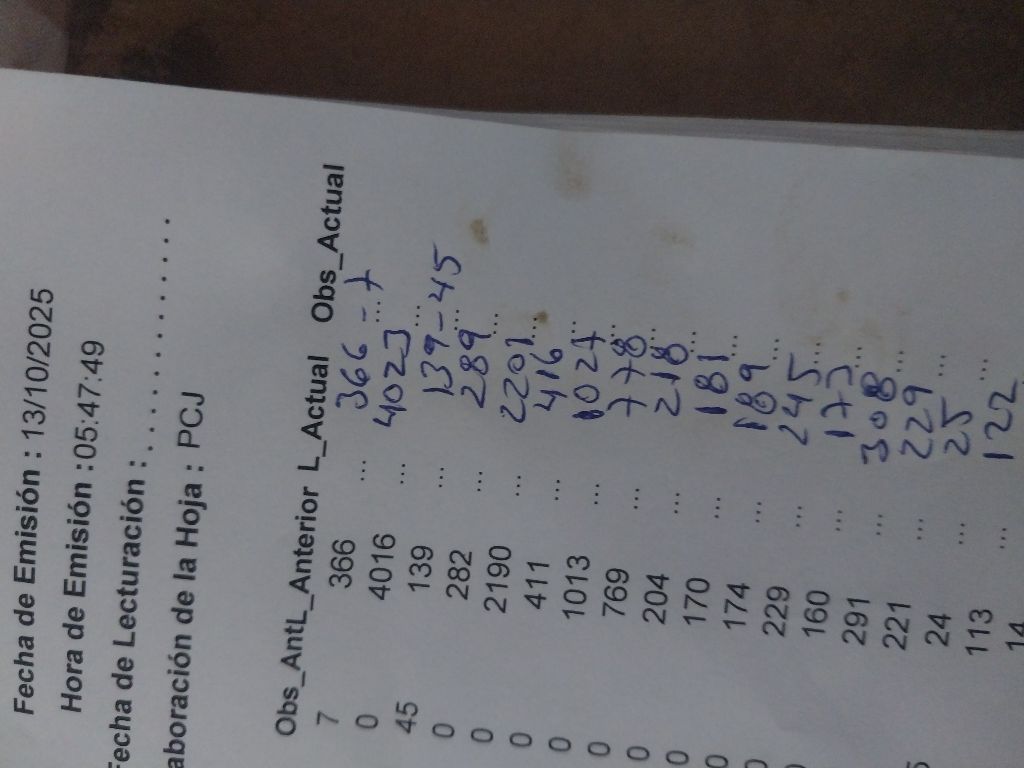 Fecha de Emisión : 13/10/2025
Hora de Emisión :05:47:49
Fecha de Lecturación : . . . . . . . . . . . . . .
aboración de la Hoja : PCJ
Obs_AntL_Anterior L_Actual Obs_Actual
7 366 ... 366 ... - 7
0 4016 ... 4023 ...
45 139 ... 139 - 45 ...
0 282 ... 289 ...
0 2190 ... 2201 ...
0 411 ... 416 ...
0 1013 ... 1027 ...
0 769 ... 778 ...
0 204 ... 218 ...
0 170 ... 181 ...
0 174 ... 189 ...
229 ... 245 ...
160 ... 173 ...
291 ... 308 ...
221 ... 229 ...
24 ... 25 ...
113 ... 122 ...
14